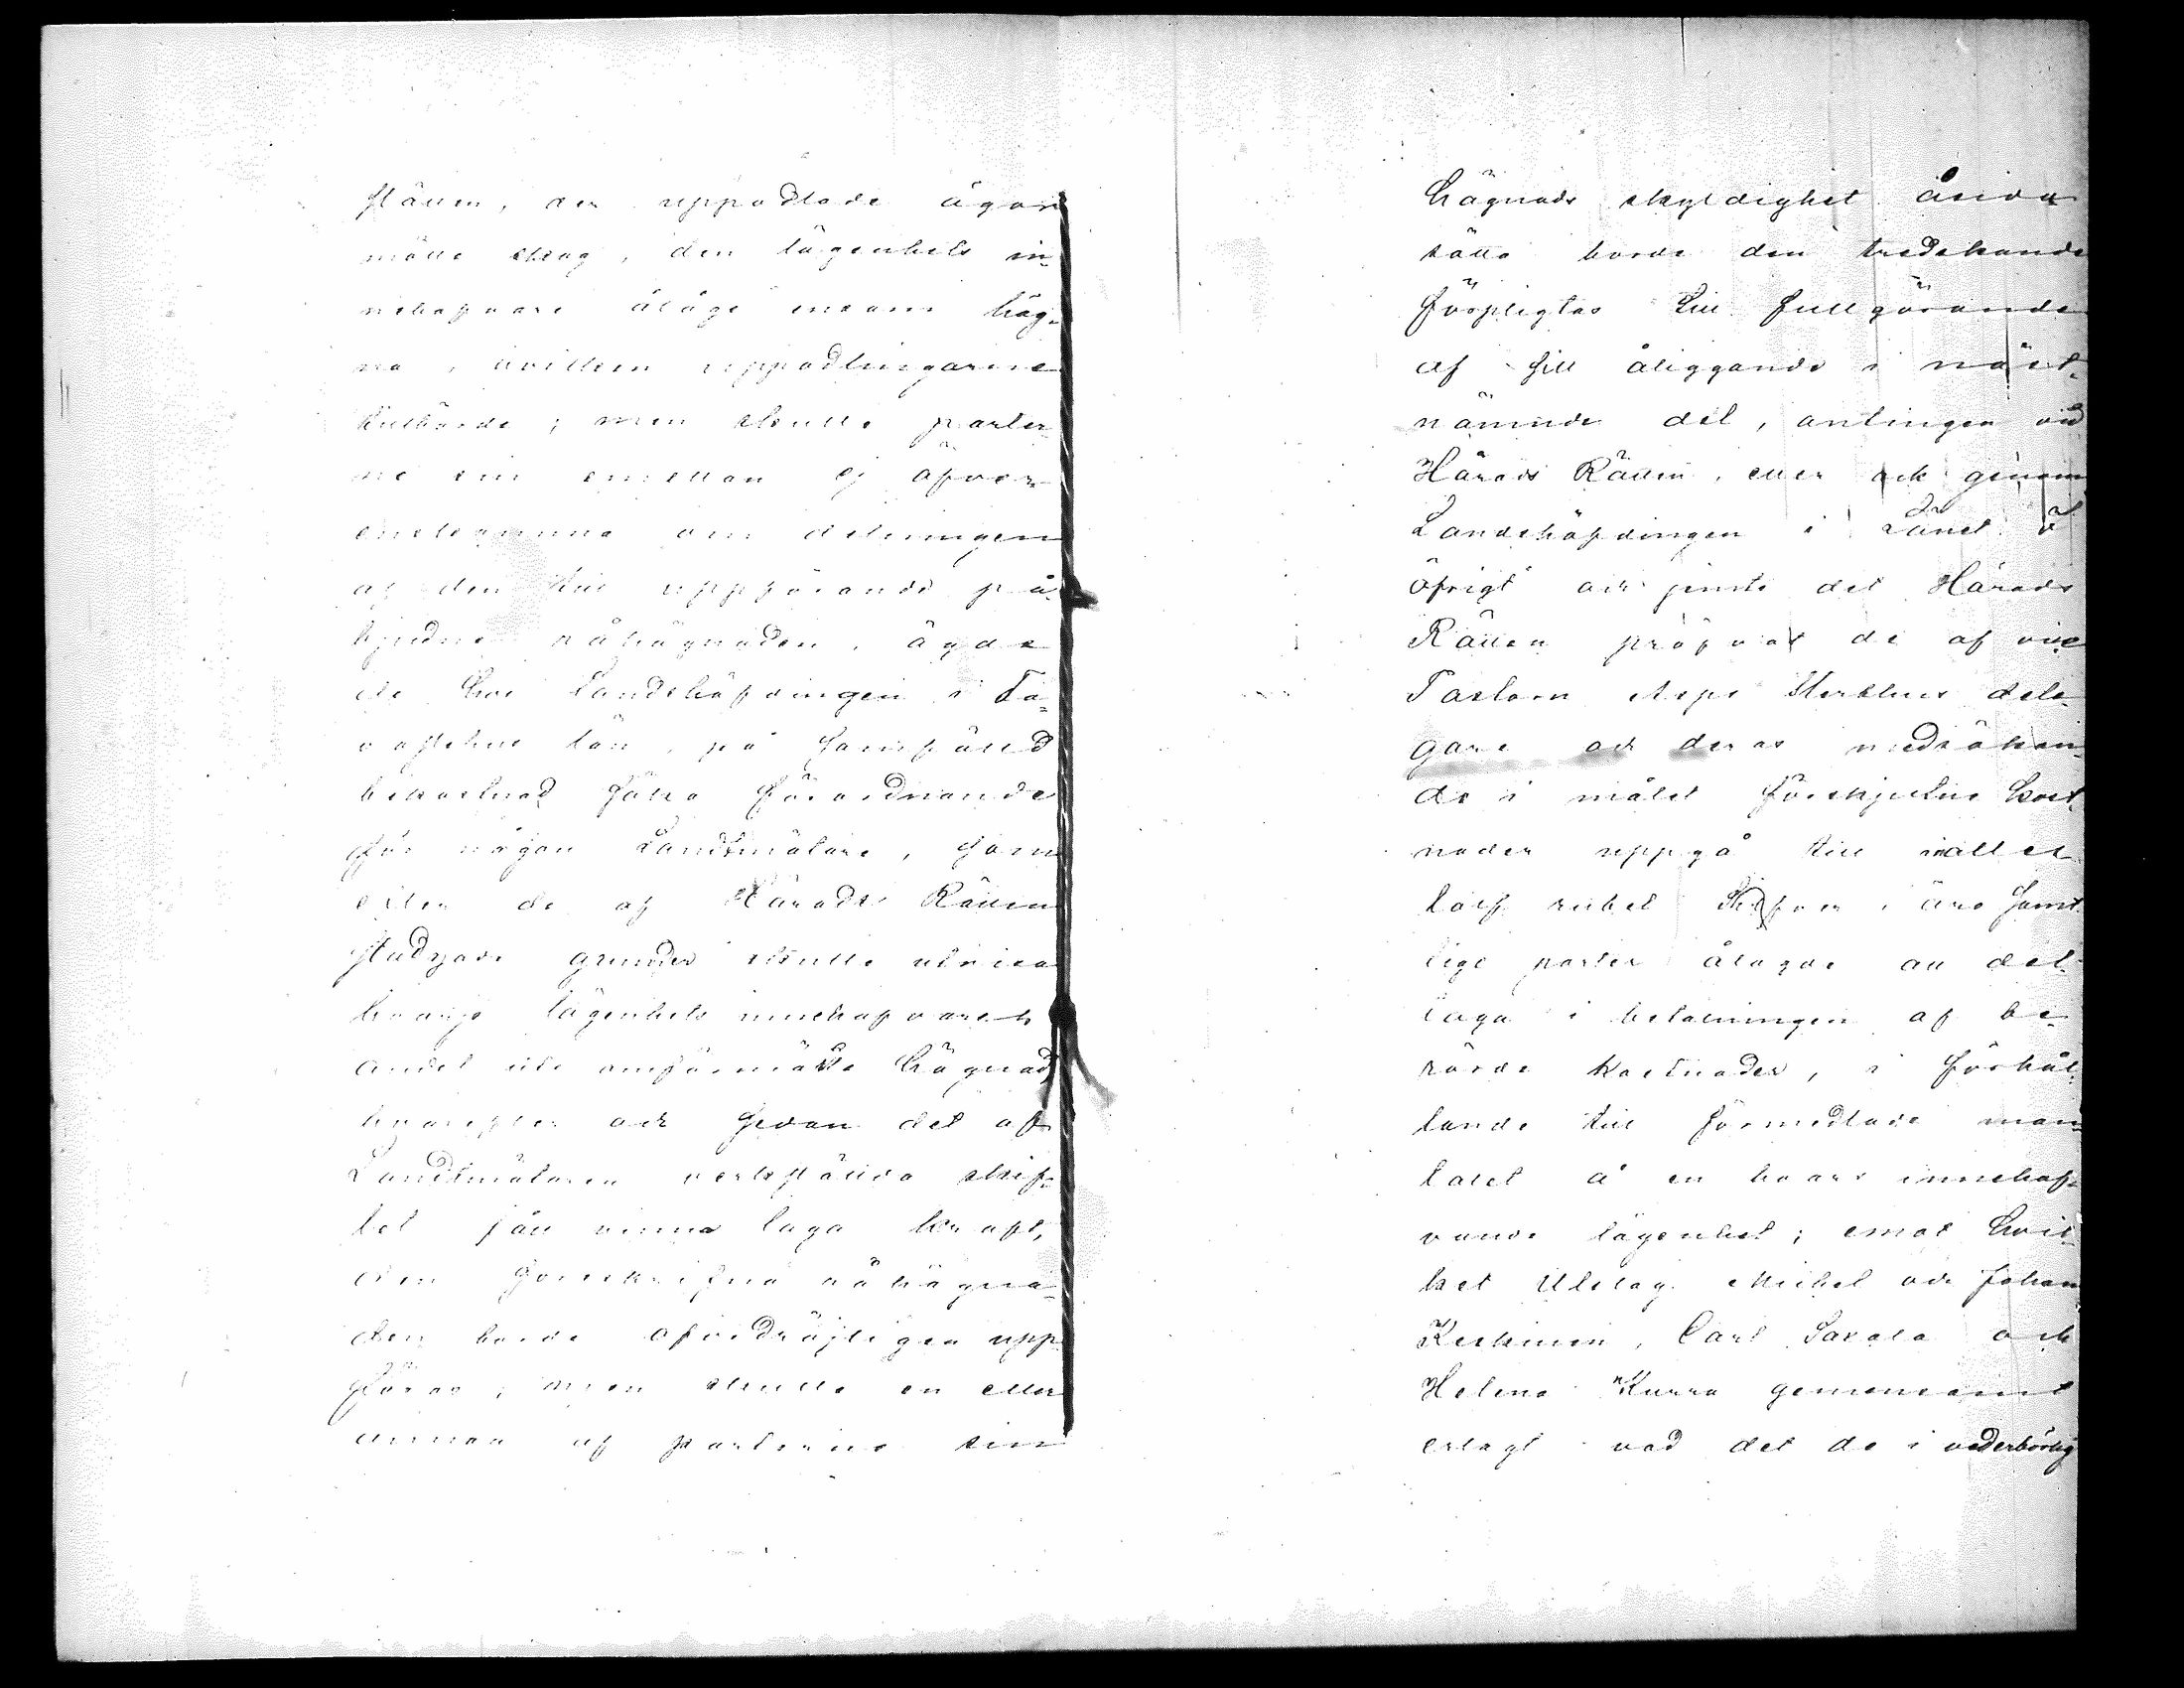 ställen, der uppodlade ägor
mötte skog, den lägenhets in-
nehafvare ålåge ensam häg-
na, hvilken uppodlingarne
tillhörde; men skulle parter-
ne sin emellan ej öfver-
enskomma om delningen
af den till uppförande på-
bjudne råhägnaden, ägde
de hos Landshöfdingen i Ta-
vastehus län, på samfäld
bekostnad söka förordnande
för någon Landtmätare, som
efter de af Härads Rätten
stadgade grunder skulle utvisa
hvarje lägenhets innehafvares
andel uti omförmälte hägnad,
hvarefter och sedan det af
Landtmätaren verkställda skif-
tet fått vinna laga kraft,
den föreskrifna råhägna-
den borde ofördröjligen upp-
föras; men skulle en eller
annan af parterne sin
hägnads skyldighet åsido
sätta borde den tredskande
förpligtas till fullgörande
af sitt åliggande i näst-
nämnde del, antingen vid
Härads Rätten, eller ock genom
Landshöfdingen i Länet
öfrigt och jemte det Härads
Rätten pröfvat de af vice
Pastorn dela-
gare och deras medsökan-
de i målet förskjutne kost-
nader uppgå till inalles
tolf rubel silfver, äro samt-
lige parter ålagde att del-
taga i betalningen af be-
rörde kostnader, i förhål-
lande till förmedlade man-
talet å en hvars innehaf-
vande lägenhet; emot hvil-
ket utslag Michel och Johan
Keskinen, Carl Savola och
Helena Kurra gemensamt
erlagt vad det de i vederbörlig